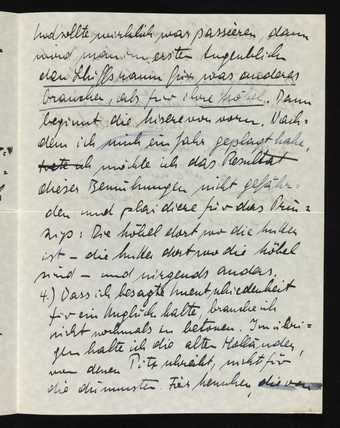 Und sollte wirklich was passieren, dann
wird man im ersten Augenblick
den Schiffsraum für was anderes
brauchen, als für ihre Möbel. Dann
beginnt die Misere von vorn. Nach-
dem ich mich ein Jahr geplagt habe,
möchte ich das Resultat
dieser Bemühungen nicht gefähr-
den und plaidiere für das Prin-
zip: Die Möbel dort wo die Mutter
ist – die Mutter dort wo die Möbel
sind – und nirgends anders.
4.) Dass ich besagte Unentschiedenheit
für ein Unglück halte, brauche ich
nicht nochmals zu betonen. Im übri-
gen halte ich die alten Holländer,
von denen schreibt, nicht für
die dümmsten die von